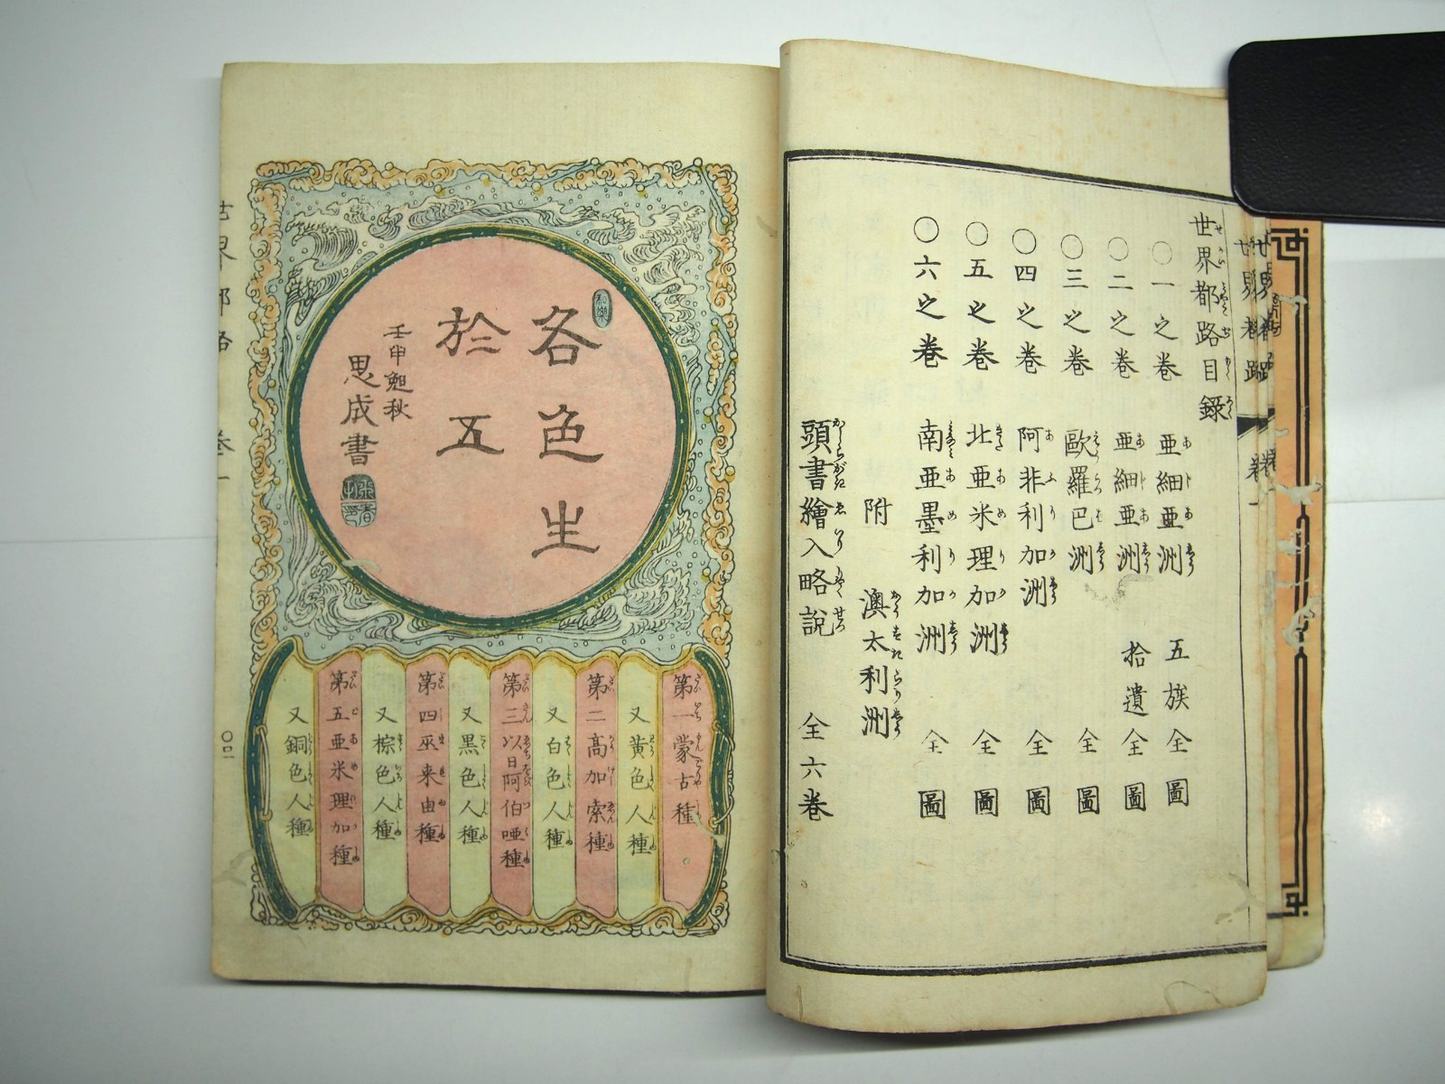 世界都路目録
〇一之巻 亜細亜洲 五族全圖
〇二之巻 亜細亜洲 拾遺全圖
〇三之巻 歐羅巴洲 全圖
〇四之巻 阿非利加洲 全圖
〇五之巻 北亜米理加洲 全圖
〇六之巻 南亜墨利加洲 全圖
附 澳太利洲
頭書繪入略説 全六巻
各色生
於五
壬申匏秋
思成書
第一蒙古種
又黄色人種
第二高加索種
又白色人種
第三以日阿伯唖種
又黒色人種
第四巫来由種
又棕色人種
第五亜米理加種
又銅色人種